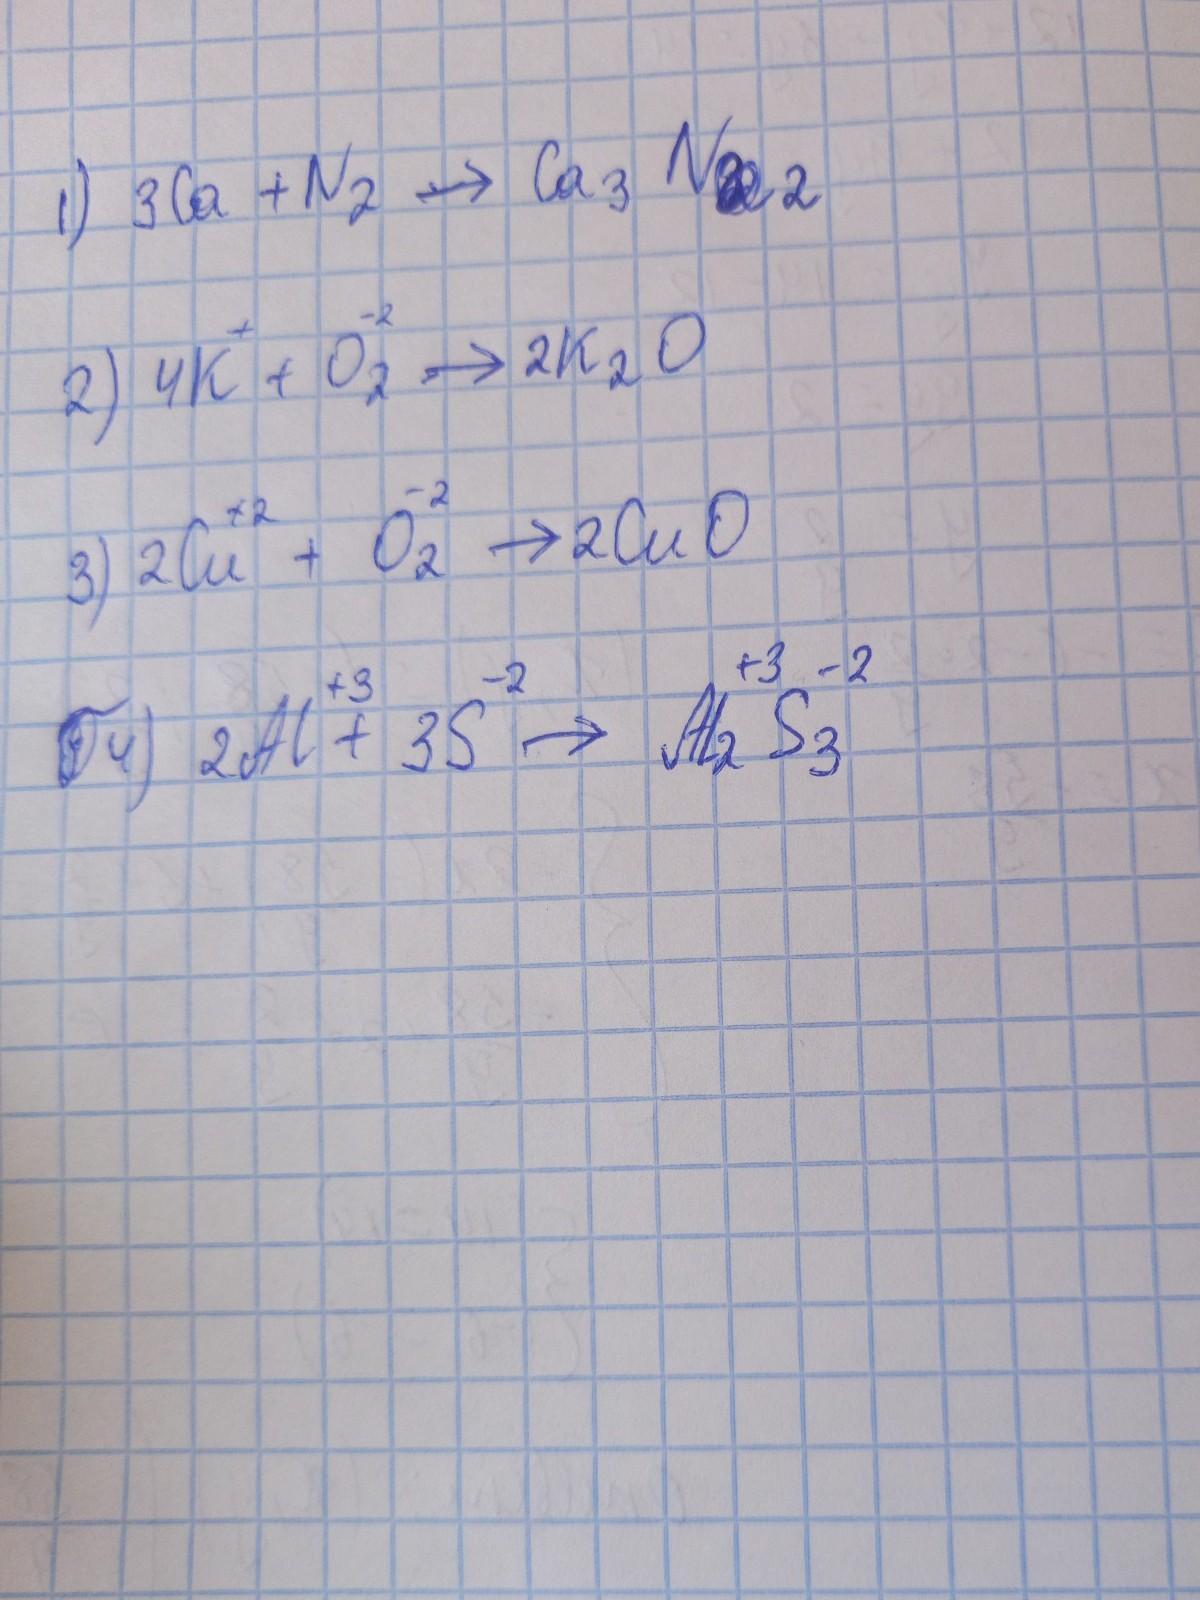 1) 3Ca + N₂ → Ca₃ N₂
2) 4K⁺ + O₂⁻² → 2K₂O
3) 2Cu⁺² + O₂⁻² → 2CuO
4) 2Al⁺³ + 3S⁻² → Al₂⁺³ S₃⁻²